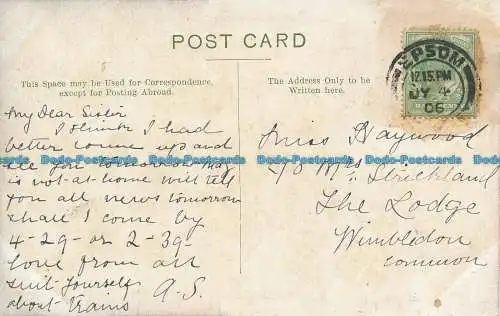 POST CARD
This Space may be Used for Correspondence,
except for Posting Abroad.
The Address Only to be
Written here.
EPSOM
12.15.PM
JY 4
06
My Dear Sister
I think I had
better come up and
see you
is not at home will tell
you all news tomorrow
shall I come by
4-29 or 2-39
love from all
suit yourself
about trains A.S.
Miss Haywood
Mrs Strickland
The Lodge
Wimbledon
Common
Bado-Postcards Bado-Postcards Bado-Postcards Bado-Postcards